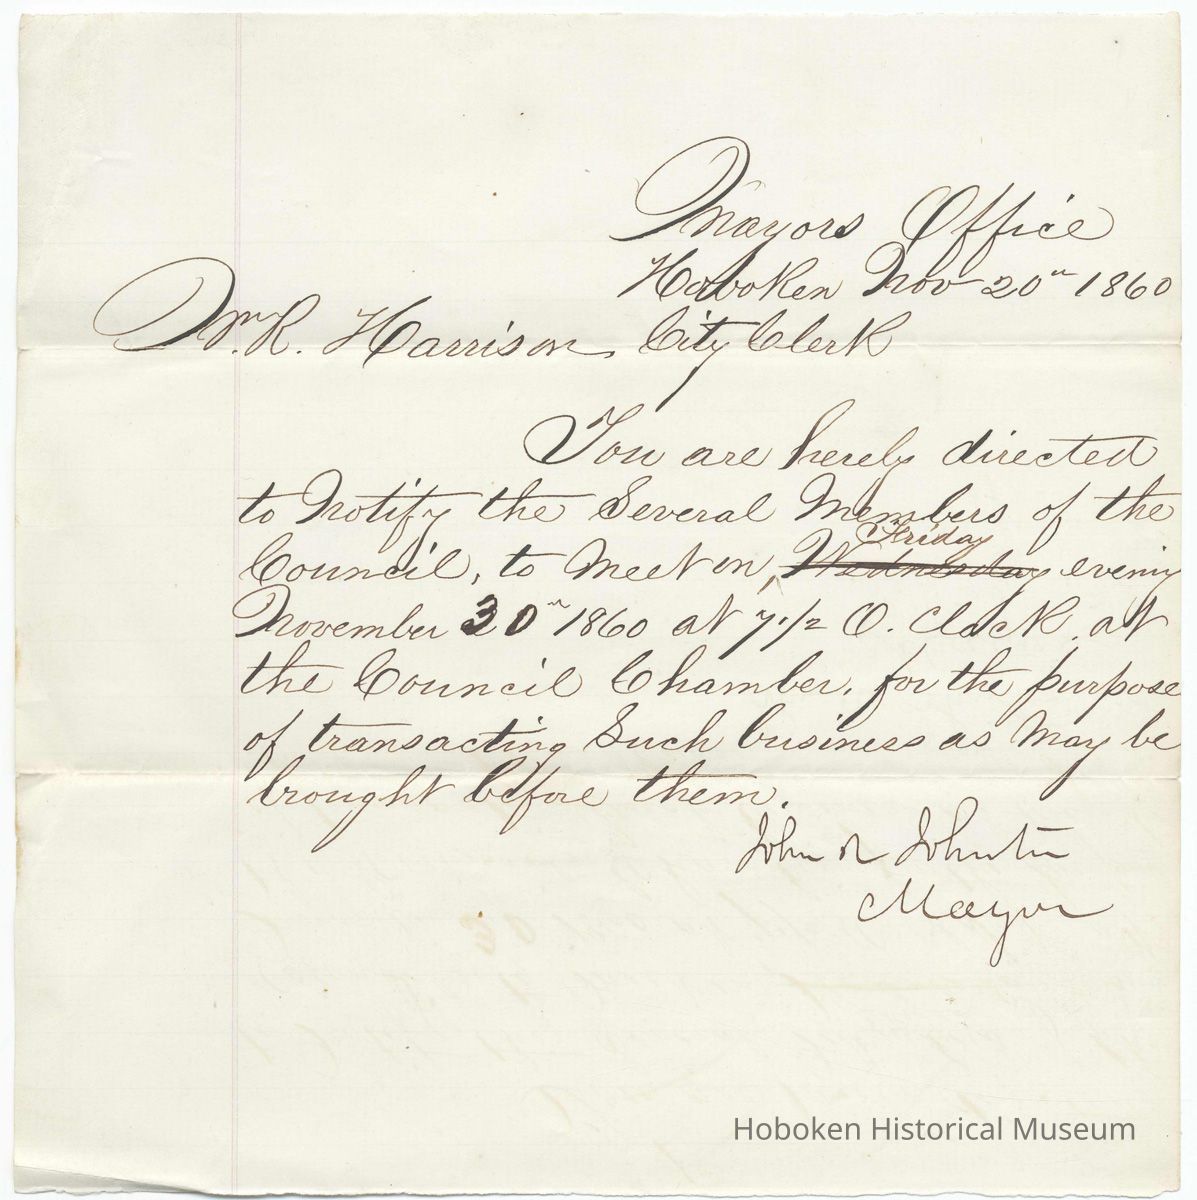 Mayors Office
Hoboken Nov 20th 1860
Wm. R. Harrison City Clerk
You are hereby directed
to Notify the Several Members of the
Friday
Council, to Meet on, Wednesday evening
November 30th 1860 at 7 1/2 O. Clock, at
the Council Chamber, for the purpose
of transacting Such business as May be
brought before them.
John R Johnston
Mayor
Hoboken Historical Museum